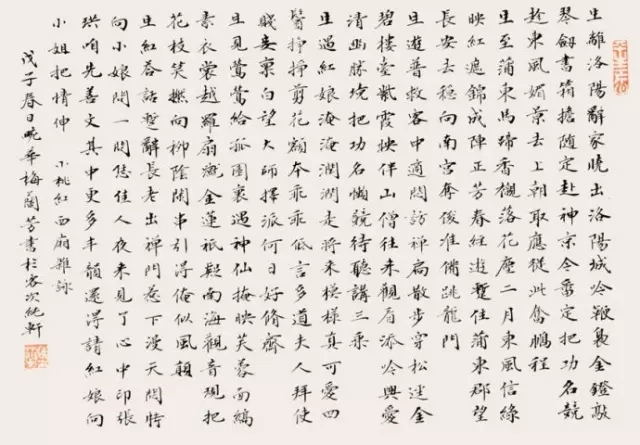 生離洛陽辭家曉出洛陽城吟鞭裊金鐙敲
琴劍書箱擔隨定赴神京今番定把功名競
趁東風媚景去上朝取應從此奮鵬程
生至蒲東馬蹄香襯落花塵二月東風信綠
映紅遮錦成陣正芳春經遊暫住蒲東郡望
長安去穩向南宮奪俊準備跳龍門
生遊普救客中適悶訪禪扃散步穿松逕金
碧樓臺紫霞映伴山僧往來觀眉添吟興愛
清幽勝境把功名懶競待聽講三乘
生遇紅娘淹淹潤潤是將來模樣真可愛四
鬢拶掙剪花顏本乖乖低言多道夫人拜使
賤妾稟白望大師擇派何日好脩齋
生見鶯鶯鶯給孤園裏遇神仙掩映芙蓉面縞
素衣裳越羅扇慨金蓮祇疑南海觀音現把
花枝笑撚向柳陰閑串引得俺似風顛
生紅答話暫辭長老出禪門惹下漫天悶特
向小娘問一問恁佳人夜來見了心中印張
珙咱先善文其中更多丰韻還得請紅娘向
小姐把情伸 小桃紅西廂雜詠
戊子春日畹華梅蘭芳書於客次純軒